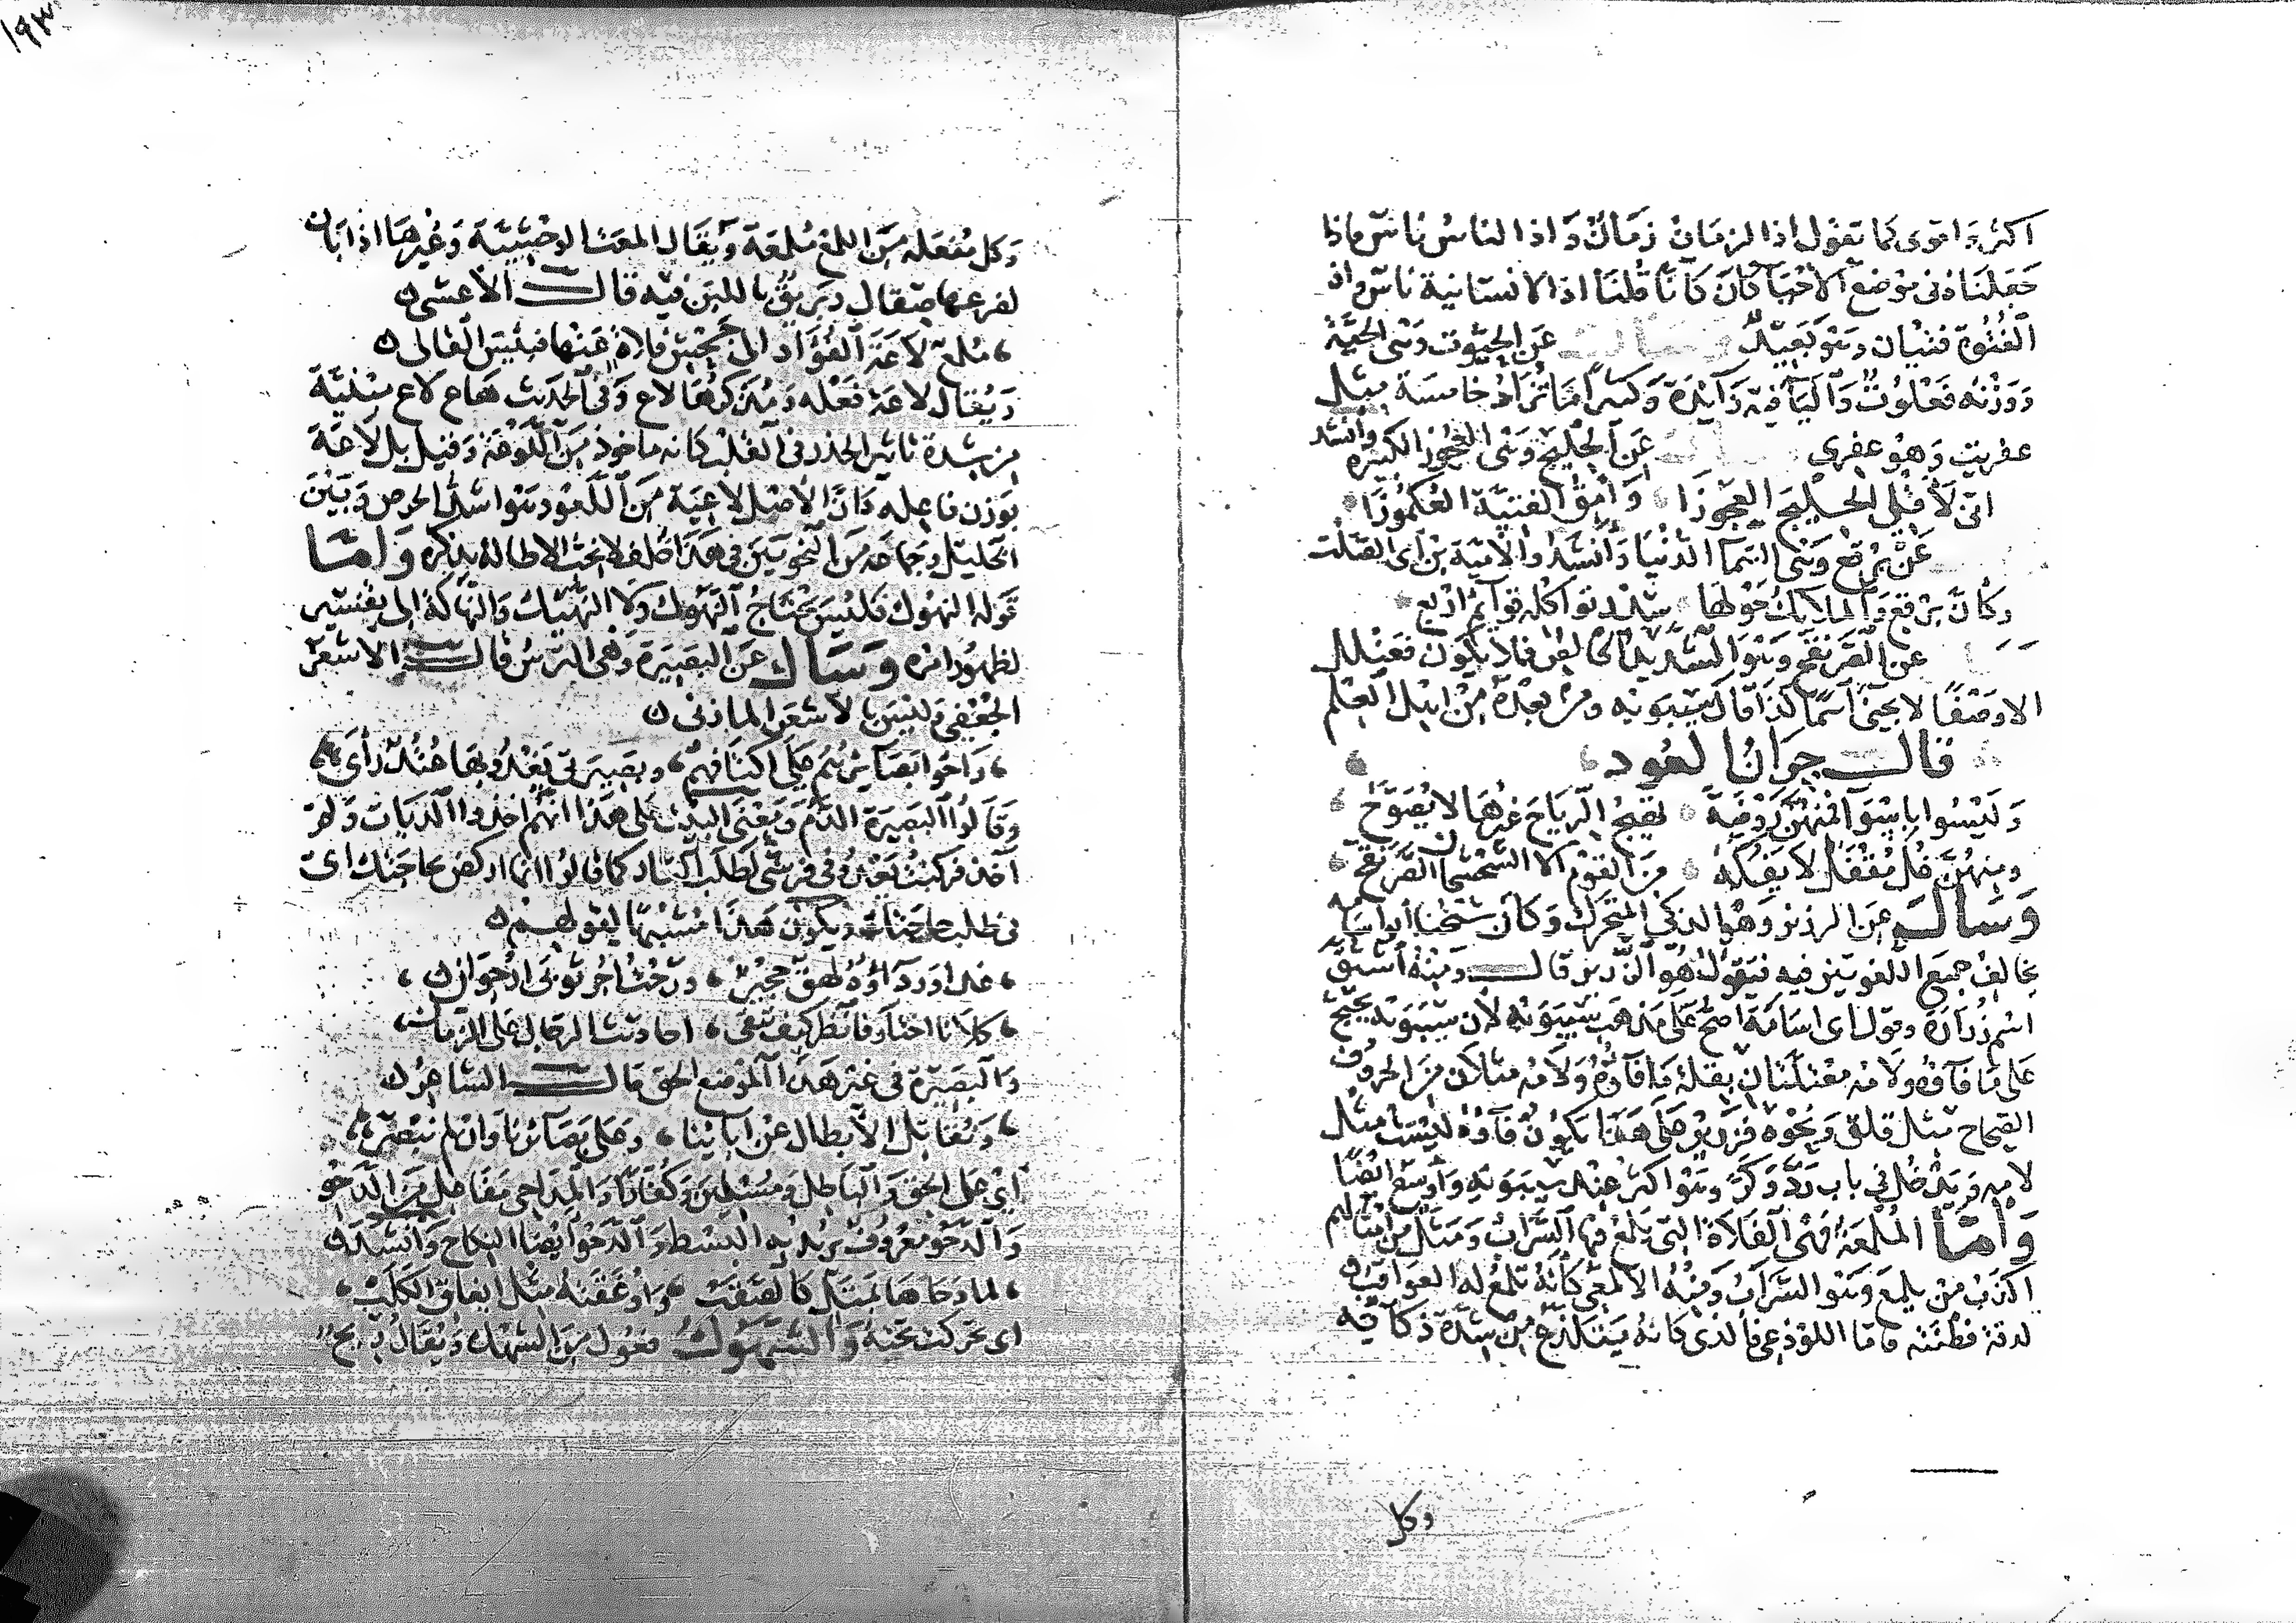 اكثر واقوى كما تقول اذا الزمان زمان واذا الناس ناس فاذا
جعلناه في موضع الاخبار كان كانا قلنا اذا الانسانية ناس واذ
الفتوة فتيان وهو بعيد وسال عن الحيوت وهي الحية
ووزنه فعلوت والتا فيه زايدة وكثيرا ما تزاد خامسة مثل
عفريت وهو عفرى عن الجليح وهي العجوز الكبيرة وانشد
انى لاقلى الجليح العجوزا وامق الفتية العكموزا
عن برقع وهي السما الدنيا وانشد والامية بن ابى الصلت
وكان برقع والملايك حولها سدر تواكله قوايم اربع
عن الصرنقح وهو الشديد الخالص فلا يكون فعنلل
الا وصفا لا يجئ اسما كذا قال سيبويه ومن بعده من اهل العلم
قال جران العود
وليسوا باسوا فمنهن روضة تهيج الرياح غيرها لا يصوح
ومنهن غل مقفل لا يفكه من القوم الا الشحشحان الصرنقح
وسال عن الرزيز وهو الذكى المتحرك وكان شيخنا ابو اسامه
يخالف جميع اللغويين فيه فيقول هو الزرير قال ومنه اشتق
اسم زرارة وقول ابى اسامة اصح على مذهب سيبويه لان سيبويه يحتج
على ما فاؤه ولامه مثلان بقلة ولامه مثلان من الحروف
الصحاح مثل قلق ونحوه فزرير على هذا يكون فاؤه ليست مثل
لامه ويدخل في باب ردد وكر وهو اكثر عند سيبويه واوسع ايضا
واما الملمعة فهي الفلاة التي يلمع فيها السراب ومثل من امثالهم
اكذب من يلمع وهو السراب ومنه الالمعى كانه تلمع له العواقب
لدقة فطنته فاما اللوذعى فالذى كانه يتلذع من شدة ذكائه
وكل
١٩٣
وكل مفعلة من اللمع ملمعة ويقال الملمعة الوحشية وغيرها اذا بان
لضرعها صقال وبريق باللبن فيه قال الاعشى
ملمع لاعة الفؤاد الى جحش فلاه عنها فبئس الفالى
ويقال لاعة فعلة ومذكرها لاع وفى الحديث هاع لاع مثلية
من شدة تاثير الحذر في القلب كانه ماخوذ من اللوعة وقيل بل لاعة
بوزن فاعله وان الاصل لاعية من اللعو وهو اشد الحرص وبين
الخليل وجماعه من النحويين في هذا خلف لا نحب الاطالة بذكره واما
قوله النهوك فليس يحتاج النهوك ولا النهيك والنهاكة الى تفسير
لظهور امره وسال عن البصيرة وهي الترس قال الاشعر
الجعفى وليس بالاشعر المازنى
راحوا بصائرهم على اكتافهم وبصيرتى يعدو بها عتد وأى
وقالوا البصيرة الدم ومعنى البيت على هذا انهم اخذوا الديات ولم
آخذ فركبت يعدو فى فرسى لطلب الثار كما قالوا انما اركض بحاجتك اى
في طلب حاجتك ويكون هذا مشبها لقولهم
غدا ورداؤه لهق حجير ورحت اجر ثوبى ارجوان
كلانا اختار فانظر كيف تبقى احاديث الرجال على الزمان
والبصيرة في غير هذا الموضع الحق قال الشاعر
ونقاتل الابطال عن ابائنا وعلى بصائرنا وان لم نبصر
اى على الحق والباطل ومسلمين وكفارا والمداحى مفاعل من الدحو
والدحو معروف يريد به البسط والدحو ايضا النكاح وانشد
لما دحاها بمتل كالصقب واوغفته مثل ايغاف الكلب
اى تحركت تحته والسهوك فعول من السهك ويقال ريح